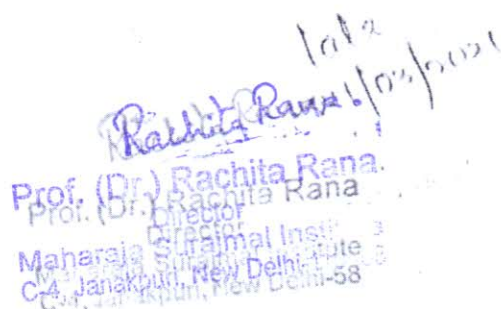 Rachita Rana
Prof. (Dr.) Rachita Rana
Director
Maharaja Surajmal Institute
C-4, Janakpuri, New Delhi-58